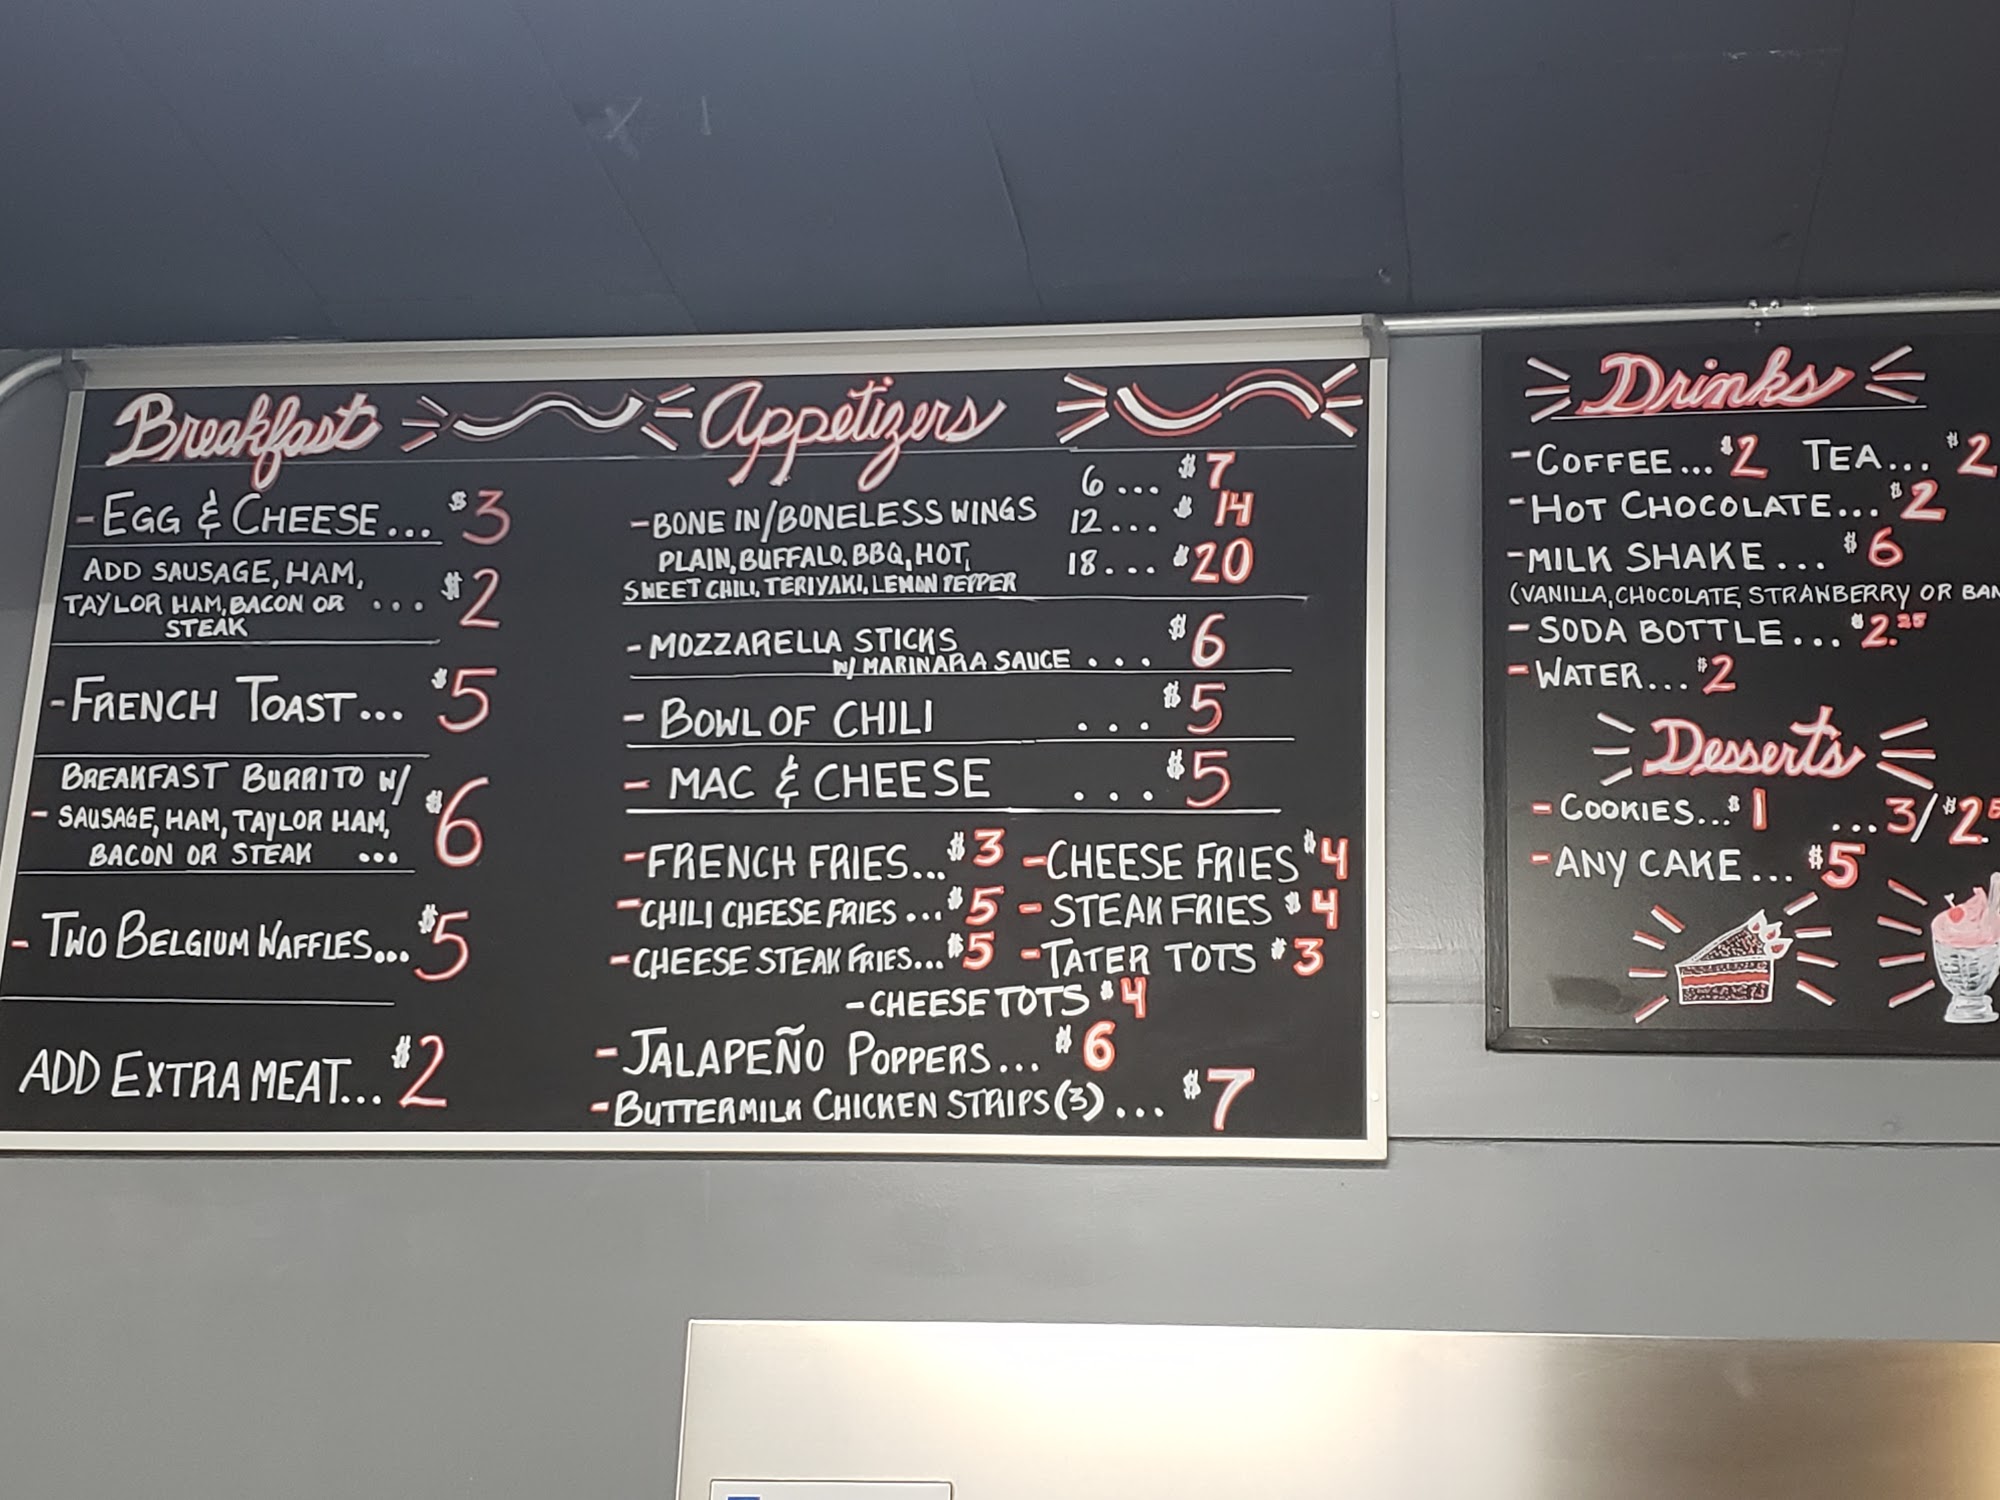 Breakfast
- EGG & CHEESE... $3
ADD SAUSAGE, HAM,
TAYLOR HAM, BACON OR ... $2
STEAK
- FRENCH TOAST... $5
BREAKFAST BURRITO W/
- SAUSAGE, HAM, TAYLOR HAM, $6
BACON OR STEAK ...
- TWO BELGIUM WAFFLES... $5
ADD EXTRA MEAT... $2
Appetizers
6 ... $7
- BONE IN/BONELESS WINGS 12... $14
PLAIN, BUFFALO, BBQ, HOT, 18... $20
SWEET CHILI, TERIYAKI, LEMON PEPPER
- MOZZARELLA STICKS $6
W/ MARINARA SAUCE ...
- BOWL OF CHILI ... $5
- MAC & CHEESE ... $5
- FRENCH FRIES... $3 - CHEESE FRIES $4
- CHILI CHEESE FRIES ... $5 - STEAK FRIES $4
- CHEESE STEAK FRIES... $5 - TATER TOTS $3
- CHEESE TOTS $4
- JALAPEÑO POPPERS... $6
- BUTTERMILK CHICKEN STRIPS (3) ... $7
Drinks
- COFFEE... $2 TEA... $2
- HOT CHOCOLATE... $2
- MILK SHAKE ... $6
(VANILLA, CHOCOLATE, STRAWBERRY OR
- SODA BOTTLE... $2.25
- WATER... $2
Desserts
- COOKIES... $1 ...3/$2.
- ANY CAKE... $5